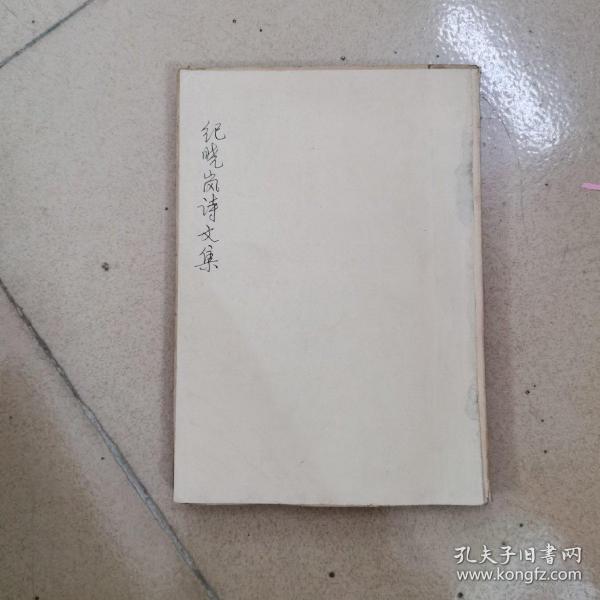 纪晓岚诗文集
孔夫子旧書网
www.kongfz.com